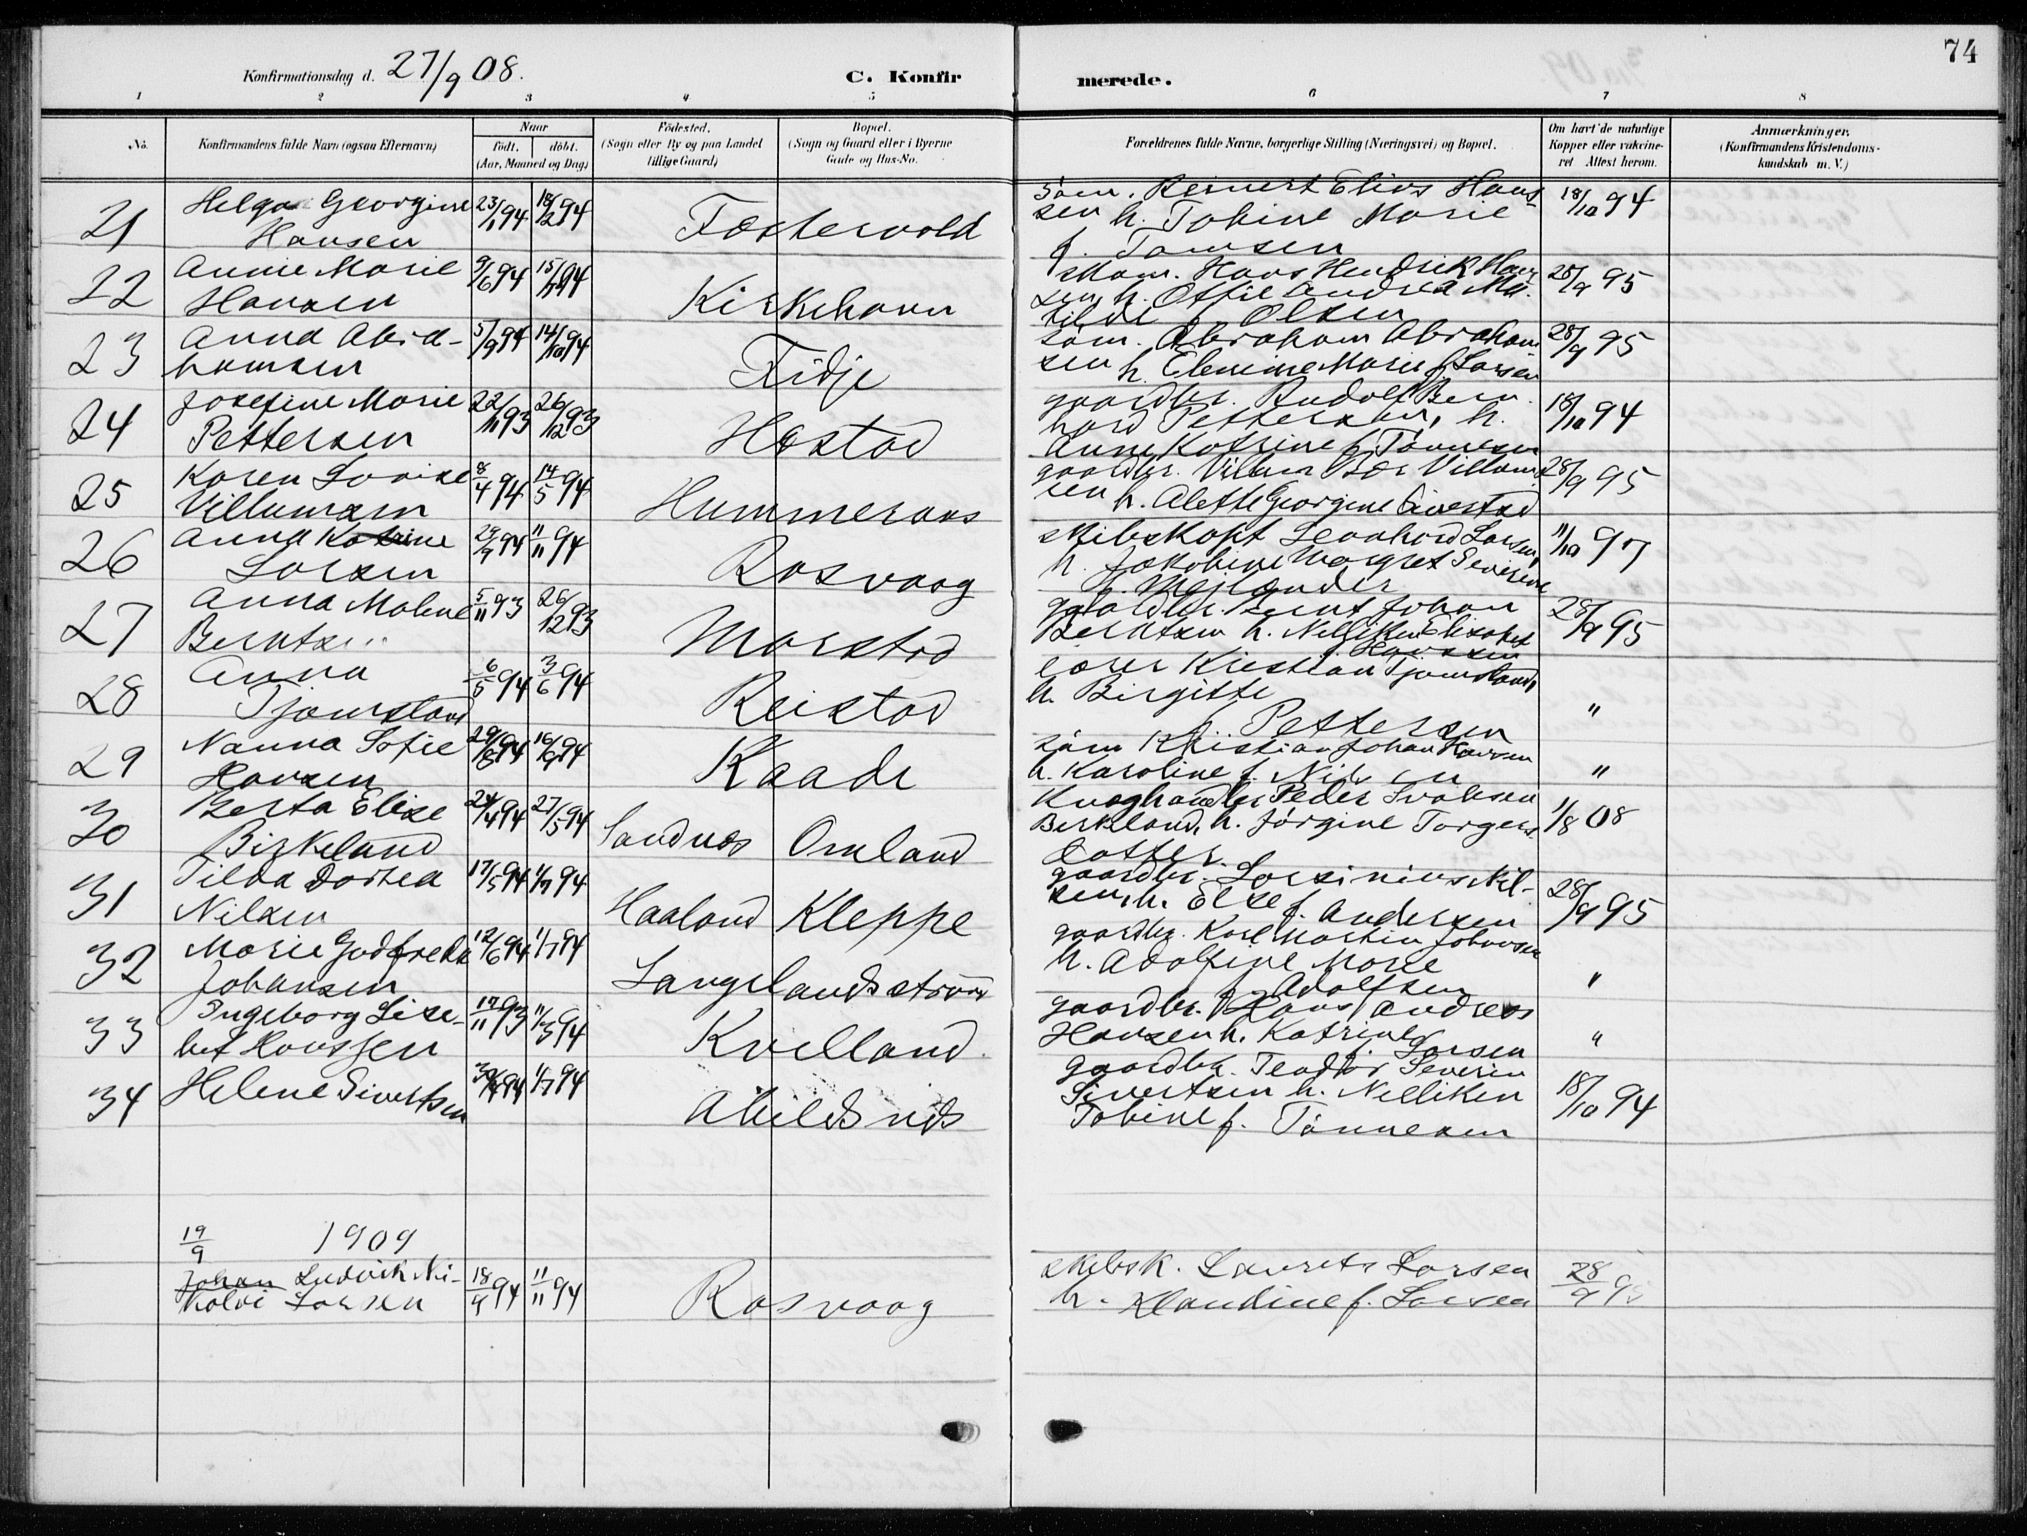 74
Konfirmationsdag d. 27/9 08.
C. Konfirmerede.
1 2 3 4 5 6 7 8
No. Konfirmandens fulde Navn (ogsaa Efternavn) Naar født. døbt. (Aar, Maaned og Dag) Fødested. (Sogn eller By og paa Landet tillige Gaard) Bopæl. (Sogn og Gaard eller i Byerne Gade og Hus-No. Forældrenes fulde Navne, borgerlige Stilling (Næringsvei) og Bopæl. Om havt de naturlige Kopper eller vakcineret Attest herom. Anmærkninger. (Konfirmandens Kristendomskundskab m. V.)
21 Helga Georgine 23/1 94 18/2 94 Fæstervold søm. Reinert Elias Hans- 18/10 94
Hansen sen h. Tobine Marie
f. Tomsen
22 Annie Marie 9/6 94 15/7 94 Kirkehavn skom. Hans Hendrik Han 28/9 95
Hansen sen, h. Otfie Andrea Ma-
tilde Olsen
23 Anna Abra- 5/9 94 14/10 94 Fidje søm. Abraham Abraham 28/9 95
hamsen sen h. Elenine Marie f. Larsen
24 Josefine Marie 22/11 93 26/12 93 Hastad gaardbr. Rudolf Bern- 18/10 94
Pettersen hard Pettersen, h.
Anne Katrine f. Tønnesen
25 Karen Lovise 8/4 94 14/5 94 Hummeraas gaardbr. Villum Villum 28/9 95
Villumsen sen h. Alette Georgine Sivestad
26 Anna Katrine 24/9 94 11/11 94 Rasvaag skibskapt Leonhard Larsen, 11/10 97
Larsen h. Jakobine Margret Severine
f. Mejlænder
27 Anna Malene 5/11 93 26/12 93 Marstad gaardbr. Bernt Johan 28/9 95
Berntsen Berntsen h. Nelliken Elisabet
Hanssen
28 Anna 6/5 94 3/6 94 Reistad lærer Kristian Tjomsland, "
Tjomsland h. Birgitte
f. Pettersen
29 Nanna Sofie 29/8 94 16/9 94 Kaade søm Kristian Johan Hansen "
Hansen h. Karoline f. Nilsen
30 Berta Elise 24/4 94 27/5 94 Sandnes Omland Kvæghandler Peder Ivarsen 1/8 08
Birkeland Birkland, h. Jørgine Torgers
datter.
31 Tilda Dortea 17/5 94 1/7 94 Haaland Kleppe gaardbr. Larsinius Nil- 28/9 95
Nilsen sen, h. Else f. Andersen
32 Marie Godfreda 12/6 94 1/7 94 Langelandsstrand gaardbr. Karl Martin Johansen "
Johansen h. Adolfine Marie
f. Adolfsen
33 Ingeborg Lisa- 17/11 93 11/3 94 Kvelland gaardbr. Hans Andreas "
bet Hanssen Hansen h. Katrine
Larsen
34 Helene Sivertsen 94 1/7 94 Abildsnes gaardbr. Teodor Severin 18/10 94
Sivertsen h. Nelliken
Tobine f. Tønnesen
19/9 1909
Johan Ludvik Ni- 18/9 94 11/11 94 Rasvaag skibsk. Laurets Larsen 28/9 95
kolai Larsen h. Klaudine f. Larsen